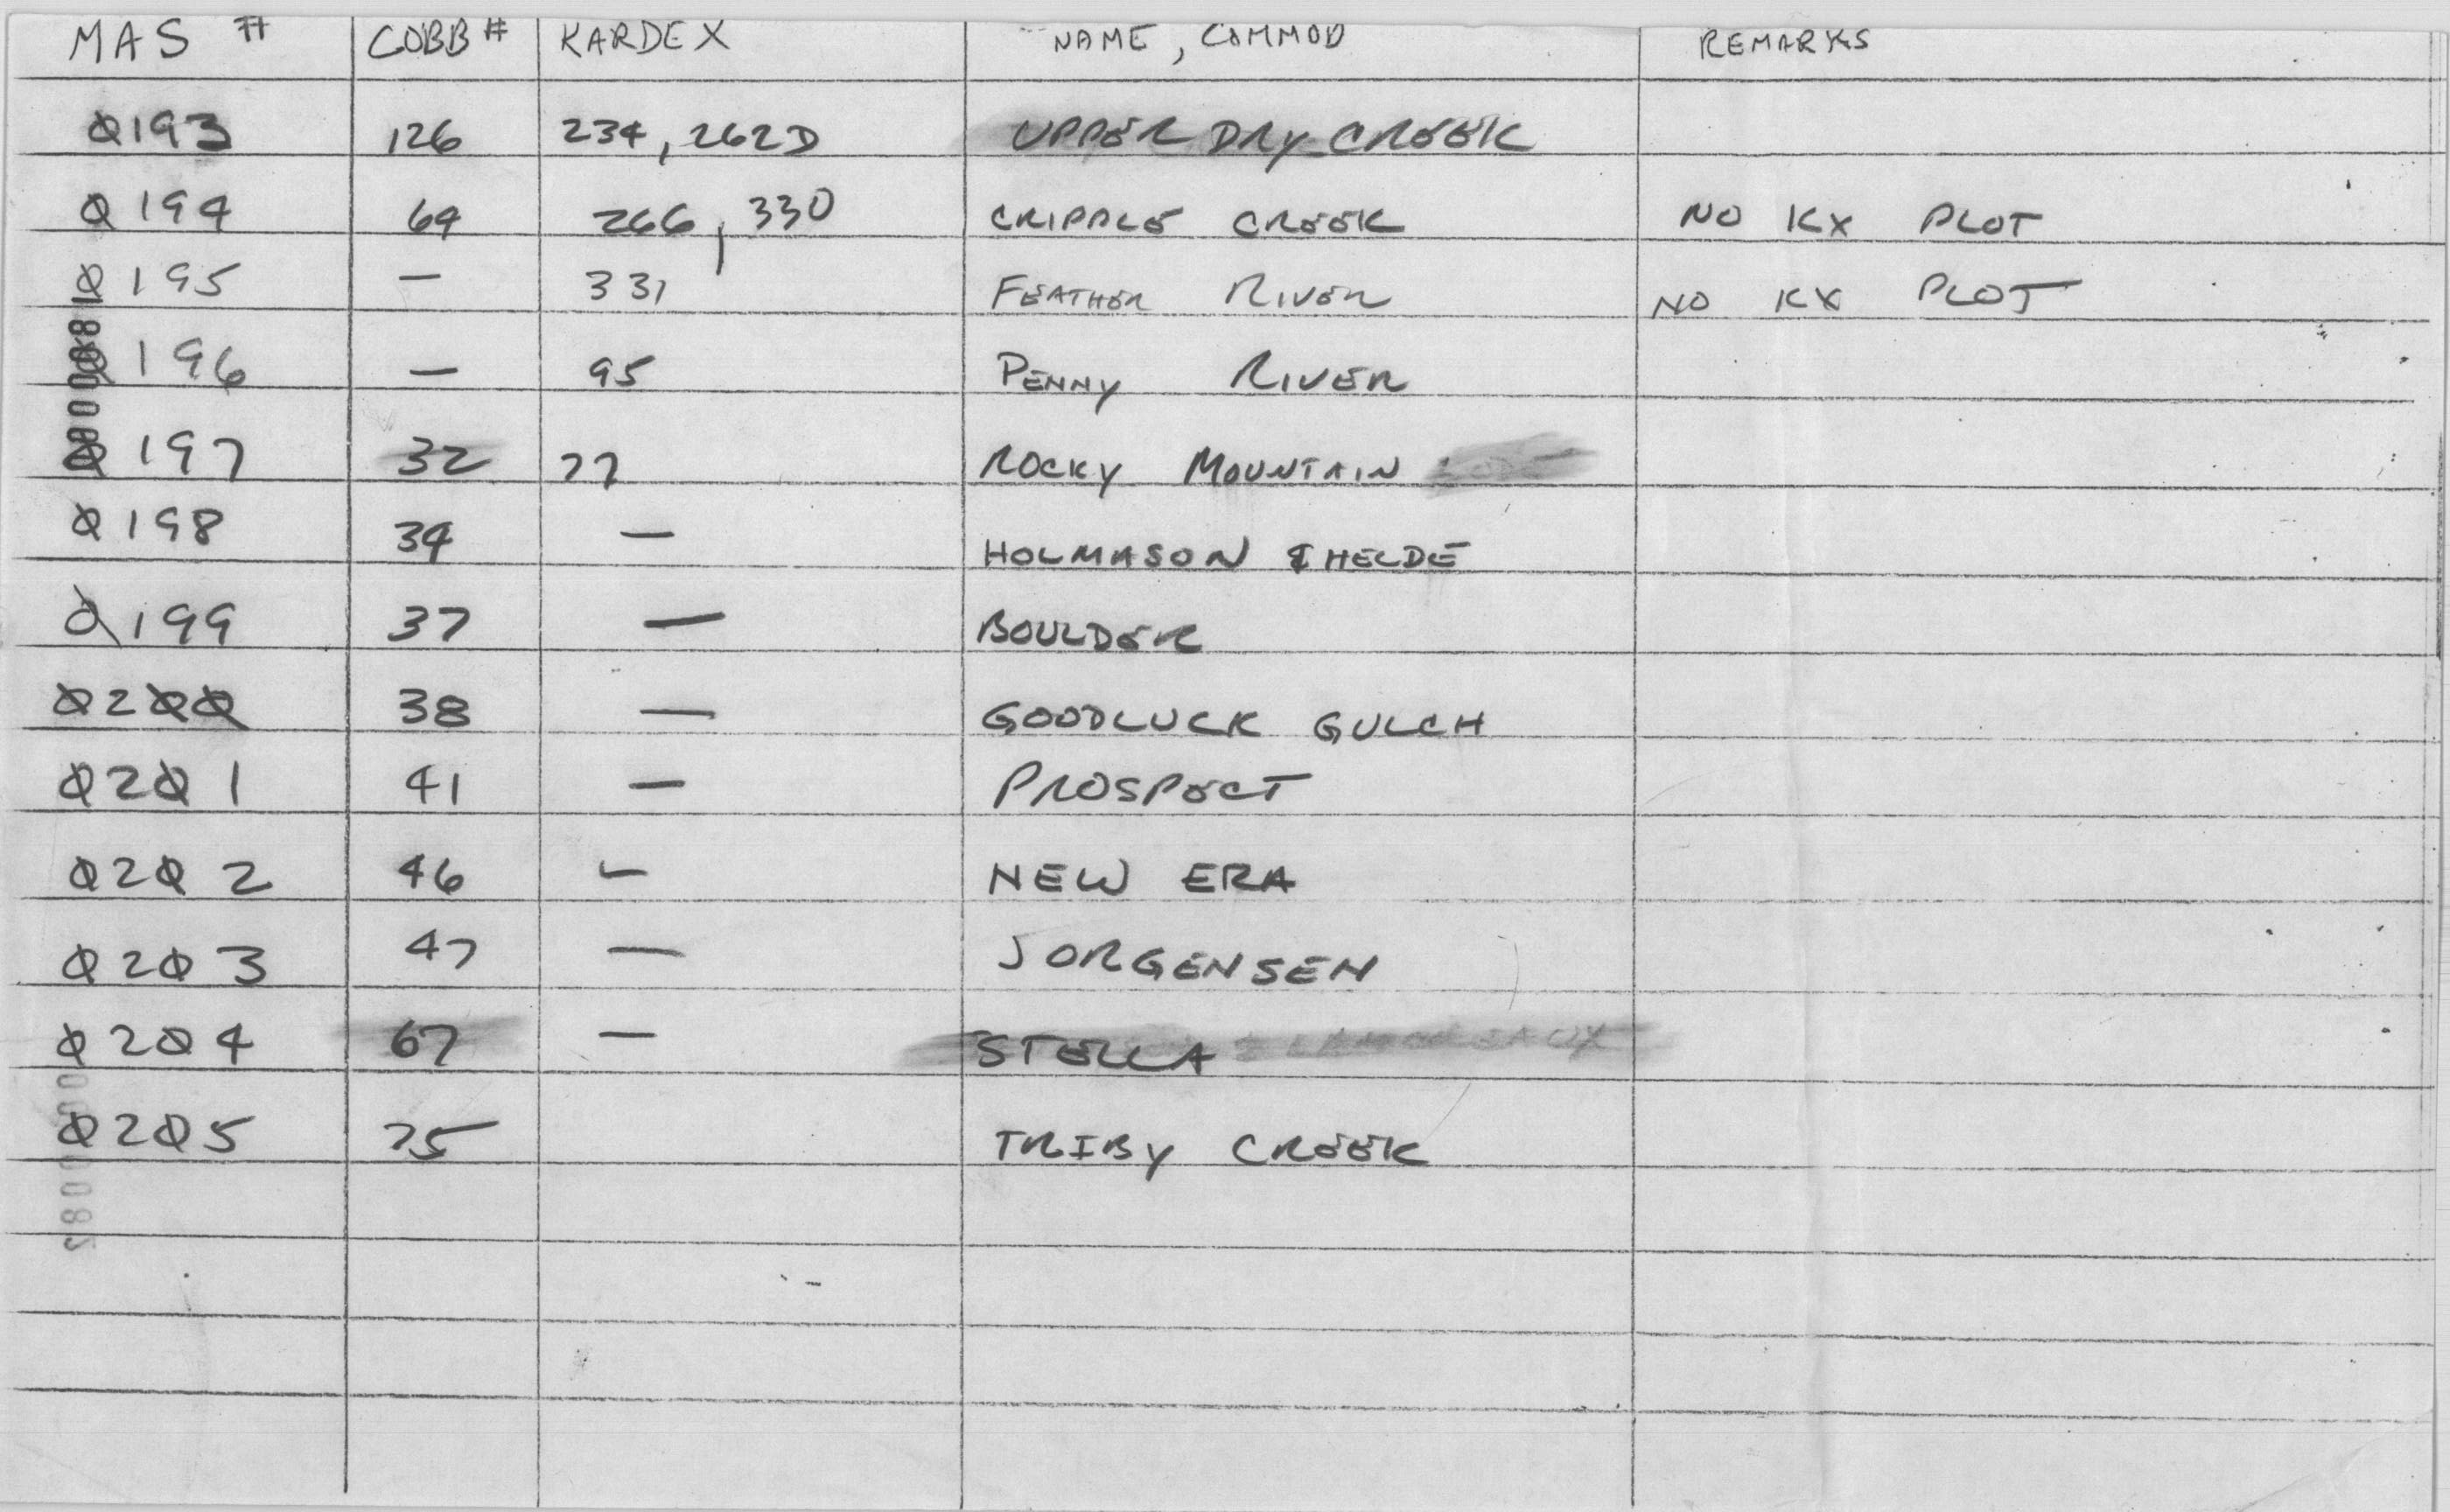 MAS # COBB # KARDEX NAME, COMMOD REMARKS
Ø193 126 234, 262D UPPER DRY CREEK
Ø194 64 266, 330 CRIPPLE CREEK NO KX PLOT
Ø195 — 331 FEATHER RIVER NO KX PLOT
Ø196 — 95 PENNY RIVER
Ø197 32 77 ROCKY MOUNTAIN
Ø198 34 — HOLMASON & HELDE
Ø199 37 — BOULDER
Ø2ØØ 38 — GOODLUCK GULCH
Ø2Ø1 41 — PROSPECT
Ø2Ø2 46 — NEW ERA
Ø2Ø3 47 — JORGENSEN
Ø2Ø4 67 — STELLA
Ø2Ø5 75 TRIBY CREEK